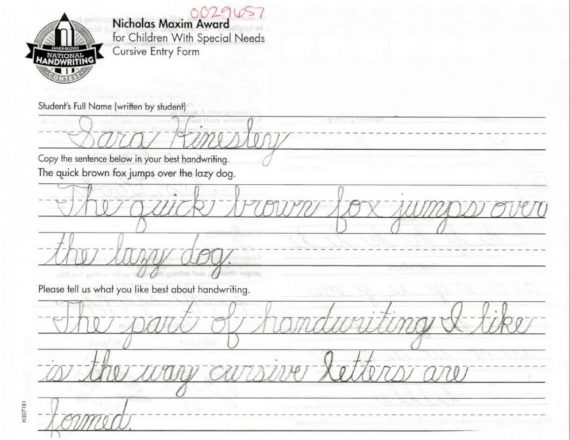 0029657
Nicholas Maxim Award
for Children With Special Needs
Cursive Entry Form
ZANER-BLOSER
NATIONAL
HANDWRITING
CONTEST
Student's Full Name (written by student)
Sara Hinesley
Copy the sentence below in your best handwriting.
The quick brown fox jumps over the lazy dog.
The quick brown fox jumps over
the lazy dog.
Please tell us what you like best about handwriting.
The part of handwriting I like
is the way cursive letters are
formed.